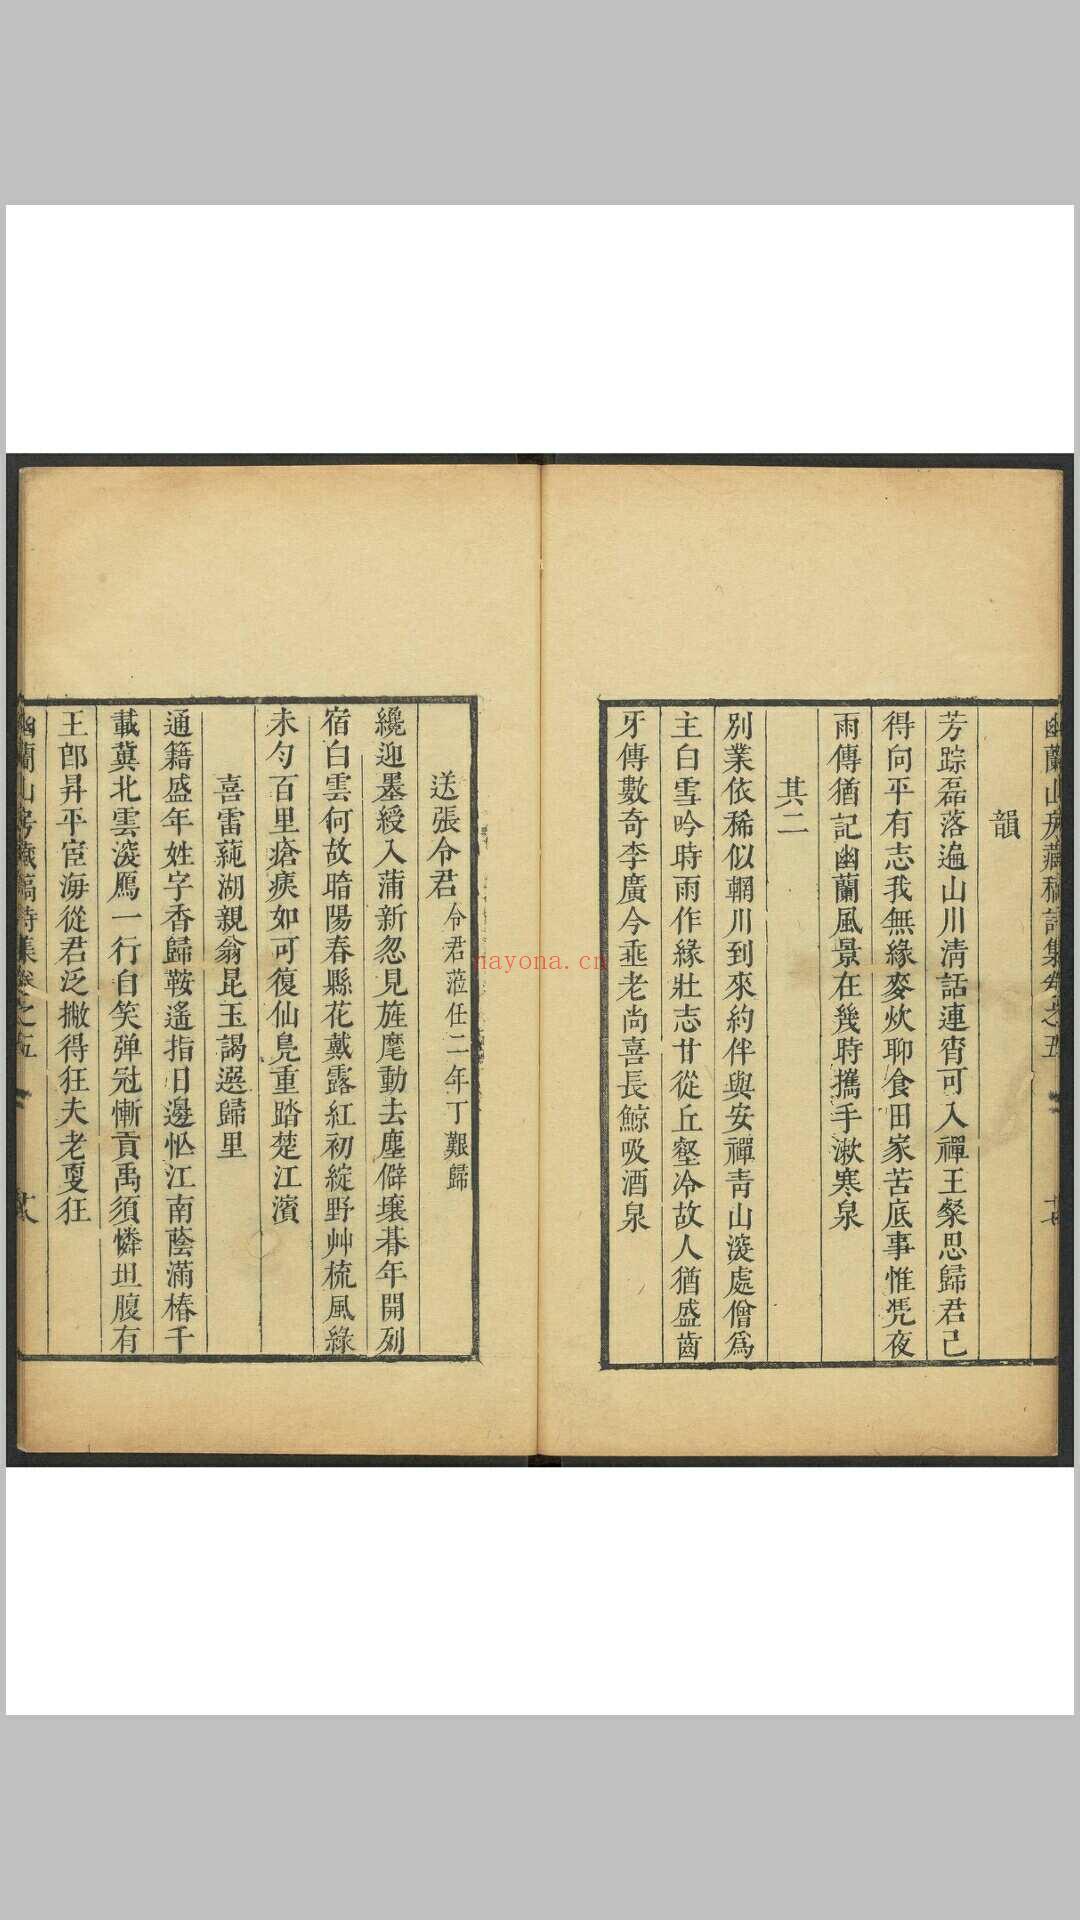 幽蘭山房藏稿詩集卷之五
韻
芳踪磊落遍山川清話連宵可入禪王粲思歸君己
得向平有志我無緣麥炊聊食田家苦底事惟凭夜
雨傳猶記幽蘭風景在幾時攜手漱寒泉
其二
別業依稀似輞川到來約伴與安禪青山深處僧爲
主白雪吟時雨作緣壯志甘從丘壑冷故人猶盛齒
牙傳數奇李廣今垂老尚喜長鯨吸酒泉
送張令君令君蒞任二年丁艱歸
纔迎墨綬入蒲新忽見旌麾動去塵僻壤朞年開列
宿白雲何故暗陽春縣花戴露紅初綻野艸梳風綠
未勻百里瘡痍如可復仙鳧重踏楚江濱
喜雷蒓湖親翁昆玉謁選歸里
通籍盛年姓字香歸鞍遙指日邊忙江南蔭滿椿千
載冀北雲深鴈一行自笑弹冠慚貢禹須憐坦腹有
王郎昇平宦海從君泛撇得狂夫老更狂
幽蘭山房藏稿詩集卷之五